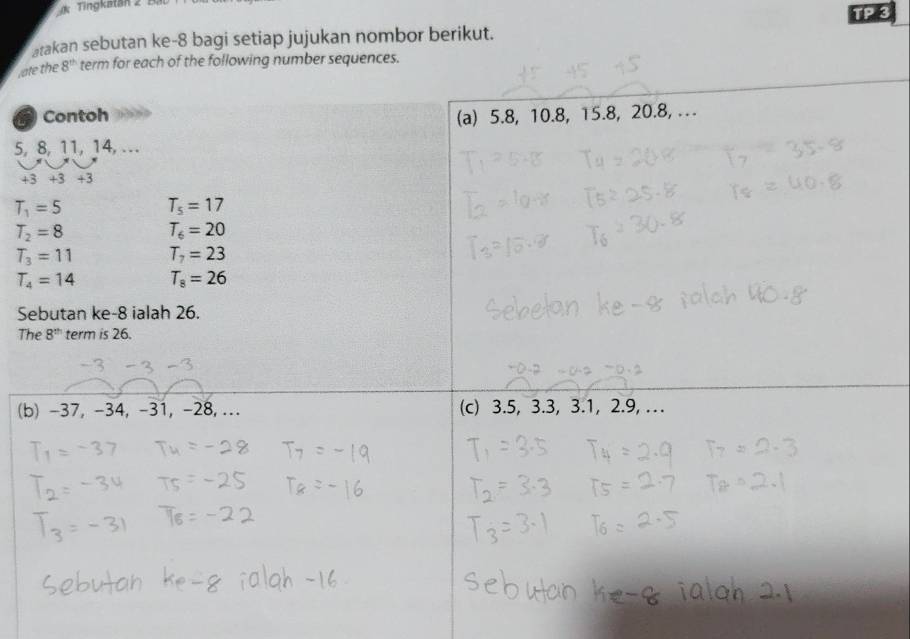 Tingkatan 2
TP 3
atakan sebutan ke-8 bagi setiap jujukan nombor berikut.
ate the 8th term for each of the following number sequences.
Contoh
5, 8, 11, 14, ...
+3 +3 +3
T₁ = 5 T₅ = 17
T₂ = 8 T₆ = 20
T₃ = 11 T₇ = 23
T₄ = 14 T₈ = 26
Sebutan ke-8 ialah 26.
The 8th term is 26.
+5 +5 +5
(a) 5.8, 10.8, 15.8, 20.8, ...
T₁ = 5.8 T₄ = 20.8 T₇ = 35.8
T₂ = 10.8 T₅ = 25.8 T₈ = 40.8
T₃ = 15.8 T₆ = 30.8
Sebetan ke-8 ialah 40.8
-3 -3 -3
(b) −37, −34, −31, −28, ...
T₁ = -37 T₄ = -28 T₇ = -19
T₂ = -34 T₅ = -25 T₈ = -16
T₃ = -31 T₆ = -22
Sebutan ke-8 ialah -16
-0.2 -0.2 -0.2
(c) 3.5, 3.3, 3.1, 2.9, ...
T₁ = 3.5 T₄ = 2.9 T₇ = 2.3
T₂ = 3.3 T₅ = 2.7 T₈ = 2.1
T₃ = 3.1 T₆ = 2.5
Sebutan ke-8 ialah 2.1